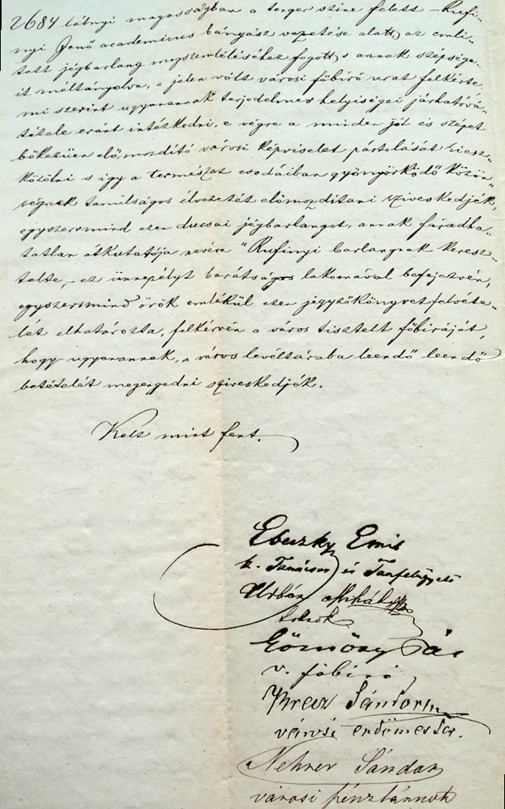 2684 lábnyi magasságban a tenger szine felett – Rufi-
nyi Jenő academicus bányász vezetése alatt, az emli-
tett jégbarlang megszemléléséhez fogott, s annak szépsége-
it méltányolva, a jelen vólt városi főbiró urat felkérte,
mi szerint ugyanannak terjedelmes helyiségei járhatová
tétele eránt intézkedni, e végre a minden jót és szépet
bőkezüen előmozditó városi képviselet pártolását kiesz-
közölni s igy a természet csodáiban gyönyörködő közön-
ségnek tanulságos élvezetét elömozditani sziveskedjék,
egyszersmind ezen ducsai jégbarlangot, annak fáradha-
tatlan átkutatója nevére "Rufinyi barlangnak keresz-
telte, ez ünnepélyt barátságos lakomával befejezvén,
egyszersmind örök emlékül ezen jegyzőkönyvet felvéte-
let elhatározta, felkérvén a város tisztelt főbiráját,
hogy ugyanannak, a város levéltárába leendő leendő
betételét megengedni sziveskedjék.
Kelt mint fent.
Ebeczky Emil
k. Tanácsos és Tanfelügyelő
Urbán Mihály
Gömöry
v. főbiró
Sándor
városi erdőmester.
Nehrer Sándor
városi pénztárnok